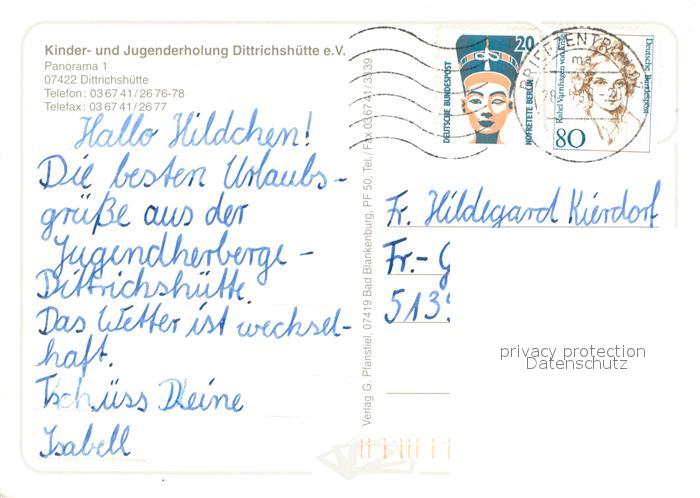 Kinder- und Jugenderholung Dittrichshütte e.V.
Panorama 1
07422 Dittrichshütte
Telefon: 0 36 7 41 / 26 76-78
Telefax: 0 36 7 41 / 26 77
Hallo Hildchen!
Die besten Urlaubs-
grüße aus der
Jugendherberge -
Dittrichshütte.
Das Wetter ist wechsel-
haft.
Tschüss Deine
Isabell
Verlag G. Planstiel, 07419 Bad Blankenburg, PF 50, Tel./Fax 0 36 7 41 / 33 39
DEUTSCHE BUNDESPOST
20
NOFRETETE BERLIN
BRIEFZENTRUM
Rahel Varnhagen von Ense
80
Deutsche Bundespost
Fr. Hildegard Kierdorf
Fr.-
513
privacy protection
Datenschutz